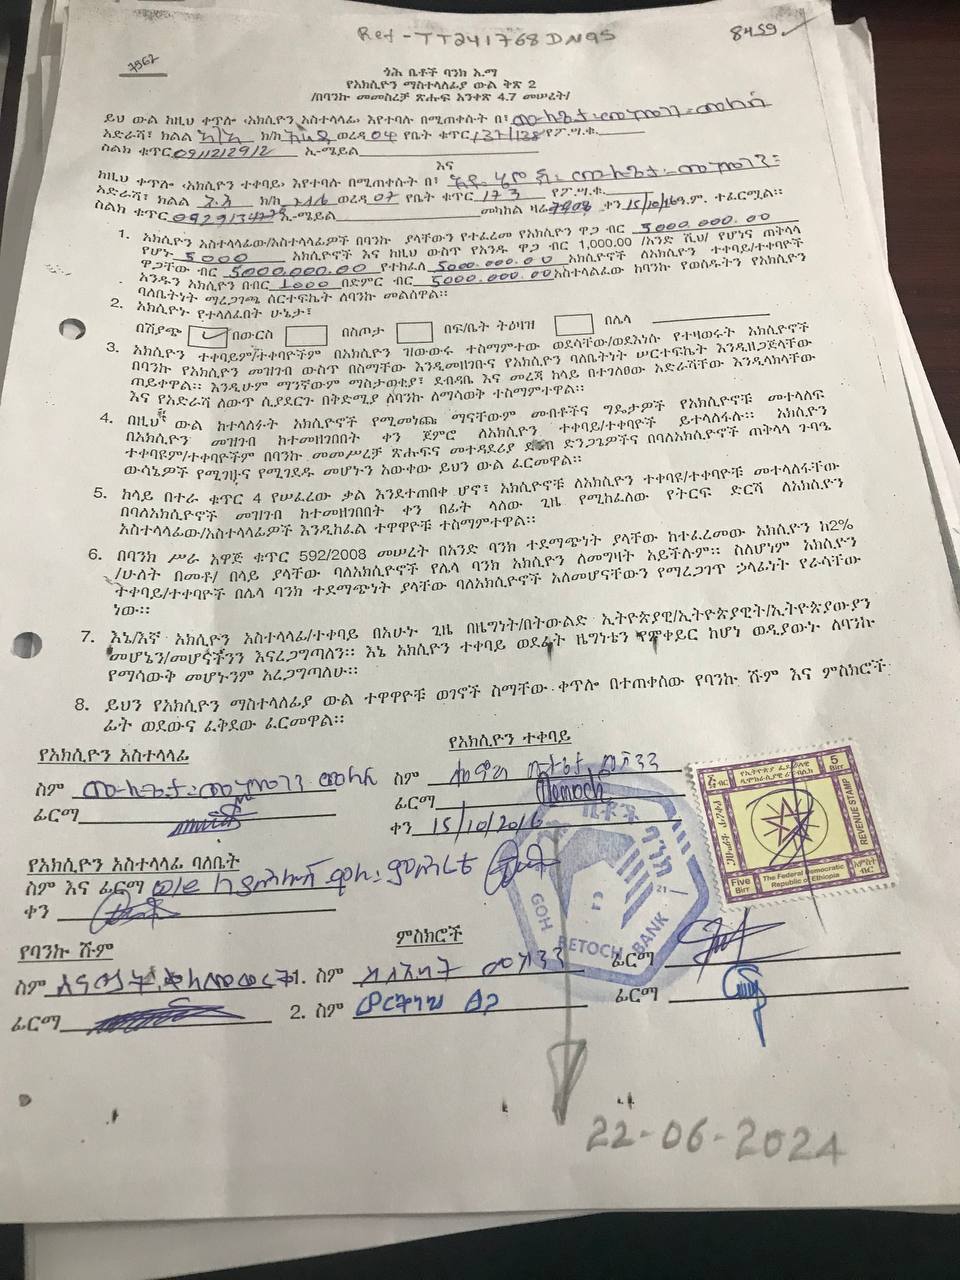 Ref - TT241768DN9S
8459
7967
ጎሕ ቤቶች ባንክ አ.ማ
የአክሲዮን ማስተላለፊያ ውል ቅጽ 2
/በባንኩ መመስረቻ ጽሑፍ አንቀጽ 4.7 መሠረት/
ይህ ውል ከዚህ ቀጥሎ ‹አክሲዮን አስተላላፊ› እየተባሉ በሚጠቀሱት በ፣
አድራሻ፣ ክልል አ/አ ክ/ከ ወረዳ 04 የቤት ቁጥር 137/138 የፖ.ሣ.ቁ.
ስልክ ቁጥር 0911212912 ኢ-ሜይል
እና
ከዚህ ቀጥሎ ‹አክሲዮን ተቀባይ› እየተባሉ በሚጠቀሱት በ፣
አድራሻ፣ ክልል አ.አ ክ/ከ ወረዳ 07 የቤት ቁጥር 173 የፖ.ሣ.ቁ.
ስልክ ቁጥር ኢ-ሜይል መካከል ዛሬ ቀን 15/10/16 ዓ.ም. ተፈርሟል።
1. አክሲዮን አስተላላፊው/አስተላላፊዎች በባንኩ ያላቸውን የተፈረመ የአክሲዮን ዋጋ ብር 5000.000.00
የሆኑ 5000 አክሲዮኖች እና ከዚህ ውስጥ የአንዱ ዋጋ ብር 1,000.00 /አንድ ሺህ/ የሆነና ጠቅላላ
ዋጋቸው ብር 5000.000.00 የተከፈለ 5000.000.00 አክሲዮኖች ለአክሲዮን ተቀባይ/ተቀባዮች
አንዱን አክሲዮን በብር 1000 በድምር ብር 5000.000.00 አስተላልፈው ከባንኩ የወሰዱትን የአክሲዮን
ባለቤትነት ማረጋገጫ ሰርተፍኬት ለባንኩ መልሰዋል።
2. አክሲዮኑ የተላለፈበት ሁኔታ፣
በሽያጭ በውርስ በስጦታ በፍ/ቤት ትዕዛዝ በሌላ
3. አክሲዮን ተቀባይም/ተቀባዮችም በአክሲዮን ዝውውሩ ተስማምተው ወደሳቸው/ወደእነሱ የተዛወሩት አክሲዮኖች
በባንኩ የአክሲዮን መዝገብ ውስጥ በስማቸው እንዲመዘገቡና የአክሲዮን ባለቤትነት ሠርተፍኬት እንዲዘጋጅላቸው
ጠይቀዋል። እንዲሁም ማንኛውም ማስታወቂያ፣ ደብዳቤ እና መረጃ ከላይ በተገለፀው አድራሻቸው እንዲላክላቸው
እና የአድራሻ ለውጥ ሲያደርጉ በቅድሚያ ለባንኩ ለማሳወቅ ተስማምተዋል።
4. በዚህ ውል ከተላለፉት አክሲዮኖች የሚመነጩ ማናቸውም መብቶችና ግዴታዎች የአክሲዮኖቹ መተላለፍ
በአክሲዮን መዝገብ ከተመዘገበበት ቀን ጀምሮ ለአክሲዮን ተቀባይ/ተቀባዮች ይተላለፋሉ። አክሲዮን
ተቀባዩም/ተቀባዮችም በባንኩ መመሥረቻ ጽሑፍና መተዳደሪያ ደንብ ድንጋጌዎችና በባለአክሲዮኖች ጠቅላላ ጉባዔ
ውሳኔዎች የሚገዛና የሚገደዱ መሆኑን አውቀው ይህን ውል ፈርመዋል።
5. ከላይ በተራ ቁጥር 4 የሠፈረው ቃል እንደተጠበቀ ሆኖ፣ አክሲዮኖቹ ለአክሲዮን ተቀባዩ/ተቀባዮቹ መተላለፋቸው
በባለአክሲዮኖች መዝገብ ከተመዘገበበት ቀን በፊት ላለው ጊዜ የሚከፈለው የትርፍ ድርሻ ለአክሲዮን
አስተላላፊው/አስተላላፊዎች እንዲከፈል ተዋዋዮቹ ተስማምተዋል።
6. በባንክ ሥራ አዋጅ ቁጥር 592/2008 መሠረት በአንድ ባንክ ተደማጭነት ያላቸው ከተፈረመው አክሲዮን ከ2%
/ሁለት በመቶ/ በላይ ያላቸው ባለአክሲዮኖች የሌላ ባንክ አክሲዮን ለመግዛት አይችሉም። ስለሆነም አክሲዮን
ተቀባይ/ተቀባዮች በሌላ ባንክ ተደማጭነት ያላቸው ባለአክሲዮኖች አለመሆናቸውን የማረጋገጥ ኃላፊነት የራሳቸው
ነው።
7. እኔ/እኛ አክሲዮን አስተላላፊ/ተቀባይ በአሁኑ ጊዜ በዜግነት/በትውልድ ኢትዮጵያዊ/ኢትዮጵያዊት/ኢትዮጵያውያን
መሆኔን/መሆናችንን እናረጋግጣለን። እኔ አክሲዮን ተቀባይ ወደፊት ዜግነቴን የምቀይር ከሆነ ወዲያውኑ ለባንኩ
የማሳውቅ መሆኑንም አረጋግጣለሁ።
8. ይህን የአክሲዮን ማስተላለፊያ ውል ተዋዋዮቹ ወገኖች ስማቸው ቀጥሎ በተጠቀሰው የባንኩ ሹም እና ምስክሮች
ፊት ወደውና ፈቅደው ፈርመዋል።
የአክሲዮን አስተላላፊ
የአክሲዮን ተቀባይ
ስም
ስም
ፊርማ
ፊርማ
ቀን 15/10/2016
የአክሲዮን አስተላላፊ ባለቤት
ስም እና ፊርማ
ቀን
የባንኩ ሹም
ምስክሮች
ስም
1. ስም
ፊርማ
ፊርማ
2. ስም
ፊርማ
ጎህ ቤቶች ባንክ
GOH BETOCH BANK
5 Birr
REVENUE STAMP
Five Birr
The Federal Democratic Republic of Ethiopia
አምስት ብር
22-06-2024